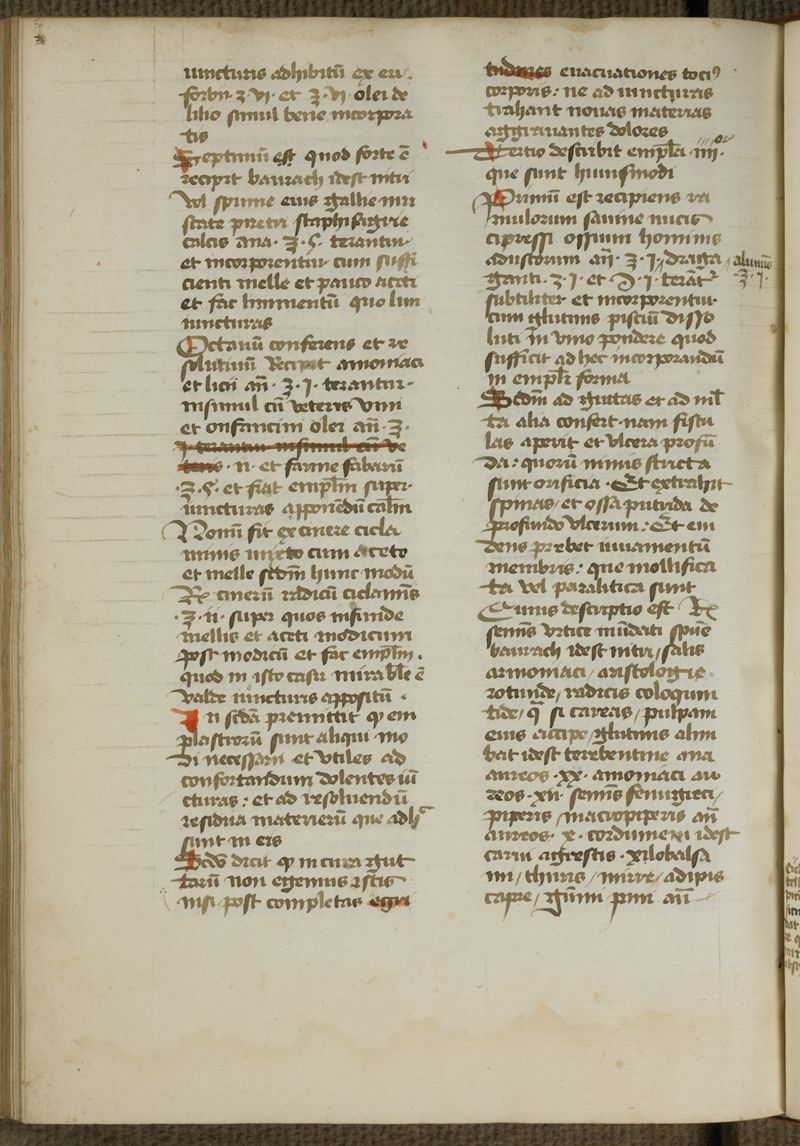 iuncturis adhibitū ex eu
forbii ʒ vi et ʒ vj olei de
lilio simul bene incorpora
tis
Septimū est quod forte ē
recipit baurach idest nitri
vel spume eius gallie mu
scate piretri staphisagrie
calcis ana ʒ ς terantur
et incorporentur cum suffi
cienti melle et pauco aceti
et fac linimentū quo lini
iuncturas
Octauū conferens et re
solutiuū Recipit amoniaci
et licii añ ʒ j terantur
insimul cū veteris vini
et onfancini olei añ ʒ
j terantur insimul cū ve
teris ii et farine fabarū
ʒ ς et fiat emplm̄ super
iuncturas apponēdū calm̄
Nonū fit ex cinere cicla
minis mixto cum aceto
et melle scdm̄ hunc modū
Rx cinerū radicū ciclamīs
ʒ ii super quos infunde
mellis et aceti modicum
post modicū et fac emplm̄
quod in isto casu mirabile ē
valde iuncturis appositū
In scda premittit qp em
plastrorū sunt aliqui mo
di necessarii et vtiles ad
confortandum dolentes iū
cturas : et ad resoluendū
residua materierū que adhˀ
sunt in eis
Scdo dicit qp in cura gut
tarū non egemus istis
nisi post completas egri
tudines euacuationes tociꝰ
corporis : ne ad iuncturas
trahant nouas materias
aggrauantes dolores
Tertio describit empla iiij or
que sunt huiusmodi
Primū est recipiens ra
mulorum sanine nucis
cipressi ossium hominis
adustorum añ ʒ j / draga / aluminis ʒ j
ganti ʒ j et ℈ j terātr
subtiliter et incorporentur
cum glutinis pisciū disso
luti in vino pondere quod
sufficit ad hec incorporandū
in emplri forma
Scdm ad guttas et ad ml̄
ta alia confert nam fistu
las aperit et vlcera profū
da : quorū nimis stricta
sunt orificia Et extrahit
spinas / et ossa putrida de
profundo vlcerum : Et eni
dens prebet iuuamentū
membris : que mollifica
ta vel paralitica sunt
Cuius descriptio est Rx
seminis vrtice mūdati spūe
baurach idest nitri / salis
armoniaci / aristologie
rotunde / radicis coloquin
tide / q̄ si careas / pulpam
eius accipe / glutinis alim
bat idest terebentine ana
aureos xx amoniaci au
reos xii seminis fenugreci /
piperis / macropiperis añ
aureos x cordumeni idest
carui agrestis xilobalsa
mi / thuris / mirre / adipis
capre / gūmi pini añ